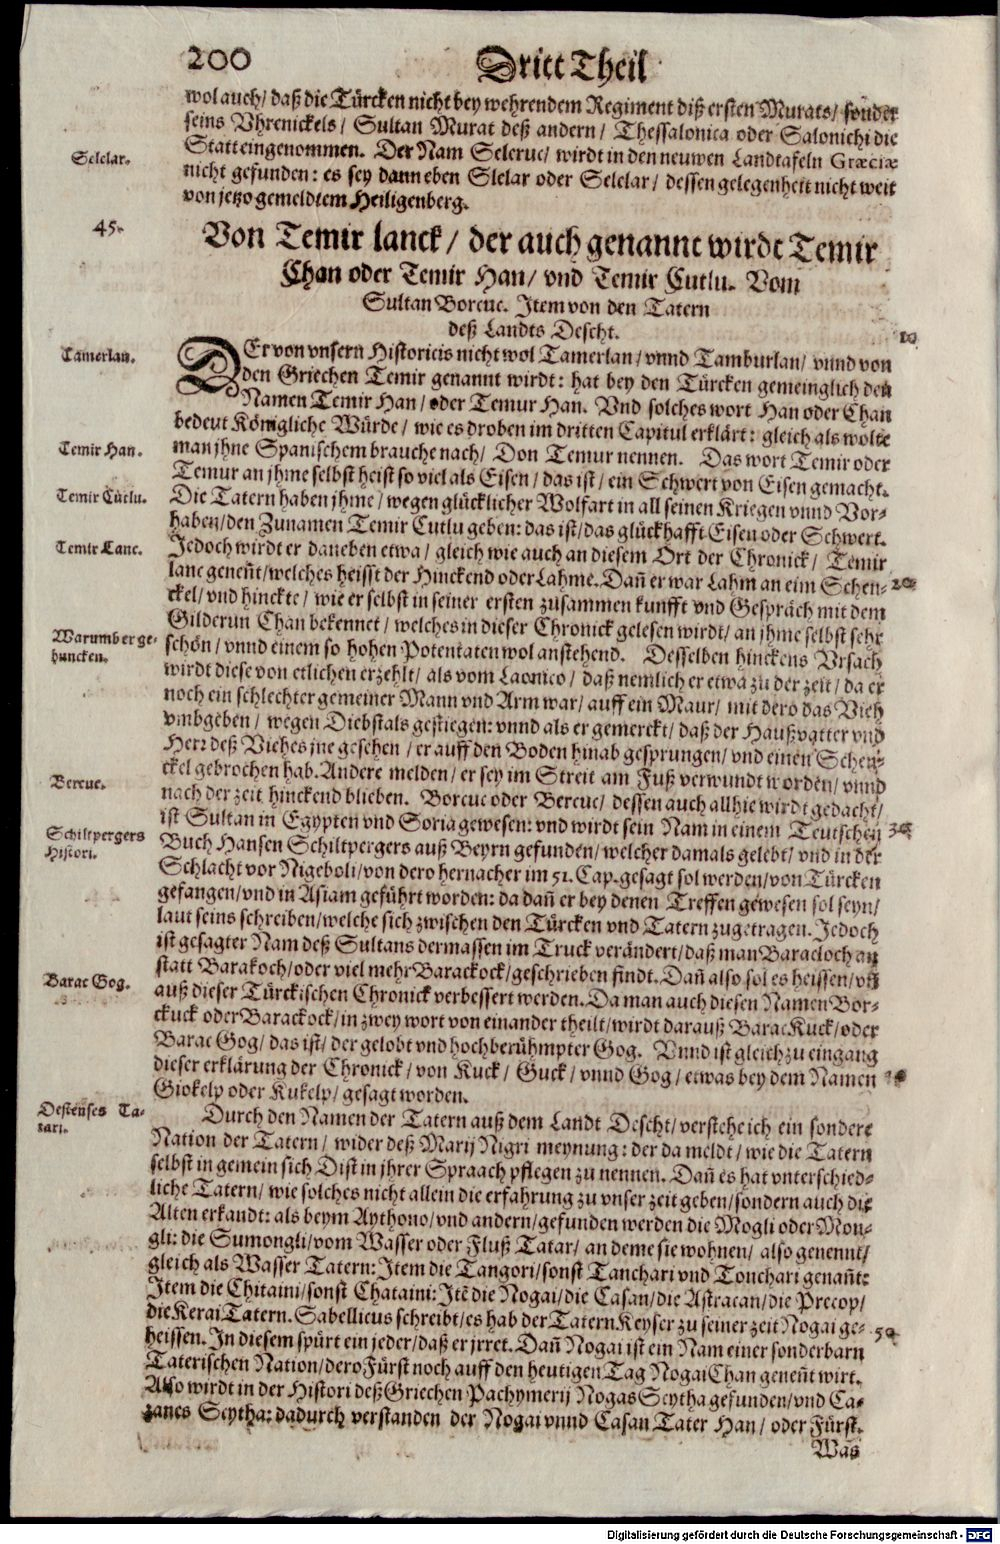 200
Dritt Theil
wol auch/ daß die Türcken nicht bey wehrendem Regiment diß ersten Murats/ sonder
seins Vhrenickels/ Sultan Murat deß andern/ Thessalonica oder Salonichi die
Statt eingenommen. Der Nam Seleruc/ wirdt in den neuwen Landtafeln Græciæ
Selelar.
nicht gefunden: es sey dann eben Slelar oder Selelar/ dessen gelegenheit nicht weit
von jetzo gemeldtem Heiligenberg.
45.
Von Temir lanck/ der auch genannt wirdt Temir
Chan oder Temir Han/ vnd Temir Cutlu. Vom
Sultan Borcuc. Item von den Tatern
deß Landts Descht.
10
Tamerlan.
DEr von vnsern Historicis nicht wol Tamerlan/ vnnd Tamburlan/ vnnd von
den Griechen Temir genannt wirdt: hat bey den Türcken gemeinglich den
Namen Temir Han/ oder Temur Han. Vnd solches wort Han oder Chan
bedeut Königliche Würde/ wie es droben im dritten Capitul erklärt: gleich als wolte
Temir Han.
man jhne Spanischem brauche nach/ Don Temur nennen. Das wort Temir oder
Temur an jhme selbst heist so viel als Eisen/ das ist/ ein Schwert von Eisen gemacht.
Temir Cutlu.
Die Tatern haben jhme/ wegen glücklicher Wolfart in all seinen Kriegen vnnd Vor-
haben/ den Zunamen Temir Cutlu geben: das ist/ das glückhafft Eisen oder Schwert.
Temir Lanc.
Jedoch wirdt er daneben etwa/ gleich wie auch an diesem Ort der Chronick/ Temir
lanc geneñt/ welches heisst der Hinckend oder Lahme. Dañ er war Lahm an eim Schen-
20
ckel/ vnd hinckte/ wie er selbst in seiner ersten zusammen kunfft vnd Gespräch mit dem
Gilderun Chan bekennet/ welches in dieser Chronick gelesen wirdt/ an jhme selbst sehr
Warumb er ge-
huncken.
schön/ vnnd einem so hohen Potentaten wol anstehend. Desselben hinckens Vrsach
wirdt diese von etlichen erzehlt/ als vom Laonico/ daß nemlich er etwa zu der zeit/ da er
noch ein schlechter gemeiner Mann vnd Arm war/ auff ein Maur/ mit dero das Vieh
vmbgeben/ wegen Diebstals gestiegen: vnnd als er gemerckt/ daß der Haußvatter vnd
Herr deß Viehes jne gesehen/ er auff den Boden hinab gesprungen/ vnd einen Schen-
ckel gebrochen hab. Andere melden/ er sey im Streit am Fuß verwundt worden/ vnnd
Bercuc.
nach der zeit hinckend blieben. Borcuc oder Bercuc/ dessen auch allhie wirdt gedacht/
ist Sultan in Egypten vnd Soria gewesen: vnd wirdt sein Nam in einem Teutschen
30
Schiltpergers
Histori.
Buch Hansen Schiltpergers auß Beyrn gefunden/ welcher damals gelebt/ vnd in der
Schlacht vor Nigeboli/ von dero hernacher im 51. Cap. gesagt sol werden/ von Türcken
gefangen/ vnd in Asiam geführt worden: da dañ er bey denen Treffen gewesen sol seyn/
laut seins schreiben/ welche sich zwischen den Türcken vnd Tatern zugetragen. Jedoch
ist gesagter Nam deß Sultans dermassen im Truck verändert/ daß man Baracloch an
statt Barakoch/ oder viel mehr Barackock/ geschrieben findt. Dañ also sol es heissen/ vñ
Barac Gog.
auß dieser Türckischen Chronick verbessert werden. Da man auch diesen Namen Bor-
ckuck oder Barackock/ in zwey wort von einander theilt/ wirdt darauß Barac Kuck/ oder
Barac Gog/ das ist/ der gelobt vnd hochberühmpter Gog. Vnnd ist gleich zu eingang
dieser erklärung der Chronick/ von Kuck/ Guck/ vnnd Gog/ etwas bey dem Namen
Giokelp oder Kukelp/ gesagt worden.
Destenses Ta-
tari.
Durch den Namen der Tatern auß dem Landt Descht/ verstehe ich ein sondere
Nation der Tatern/ wider deß Marij Nigri meynung: der da meldt/ wie die Tatern
selbst in gemein sich Dist in jhrer Spraach pflegen zu nennen. Dañ es hat vnterschied-
liche Tatern/ wie solches nicht allein die erfahrung zu vnser zeit geben/ sondern auch die
Alten erkandt: als beym Aythono/ vnd andern/ gefunden werden die Mogli oder Mon-
gli: die Sumongli/ vom Wasser oder Fluß Tatar/ an deme sie wohnen/ also genennt/
gleich als Wasser Tatern: Item die Tangori/ sonst Tanchari vnd Tonchari genañt:
Item die Chitaini/ sonst Chataini: Itẽ die Nogai/ die Casan/ die Astracan/ die Precop/
die Kerai Tatern. Sabellicus schreibt/ es hab der Tatern Keyser zu seiner zeit Nogai ge-
50
heissen. In diesem spürt ein jeder/ daß er jrret. Dañ Nogai ist ein Nam einer sonderbarn
Taterischen Nation/ dero Fürst noch auff den heutigen Tag Nogai Chan geneñt wirt.
Also wirdt in der Histori deß Griechen Pachymerij Nogas Scytha gefunden/ vnd Ca-
zanes Scytha: dadurch verstanden der Nogai vnnd Casan Tater Han/ oder Fürst.
Was
Digitalisierung gefördert durch die Deutsche Forschungsgemeinschaft - DFG